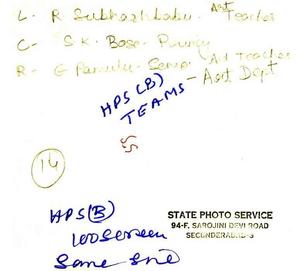 L - R Subhashbabu - Art Teacher
C - S K - Bose - 
R - G Ramulu - Senior Art Teacher
- Art Dept
HPS (B)
TEAMS
14
HPS (B)
100 Screen
Same size
STATE PHOTO SERVICE
94-F, SAROJINI DEVI ROAD
SECUNDERABAD-3